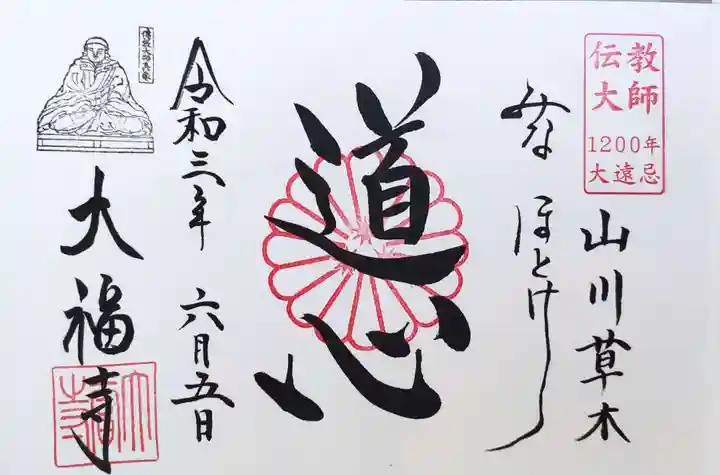 伝教
大師
1200年
大遠忌
山川草木
みな
ほとけ
道心
令和三年 六月五日
傳教大師真像
大福寺